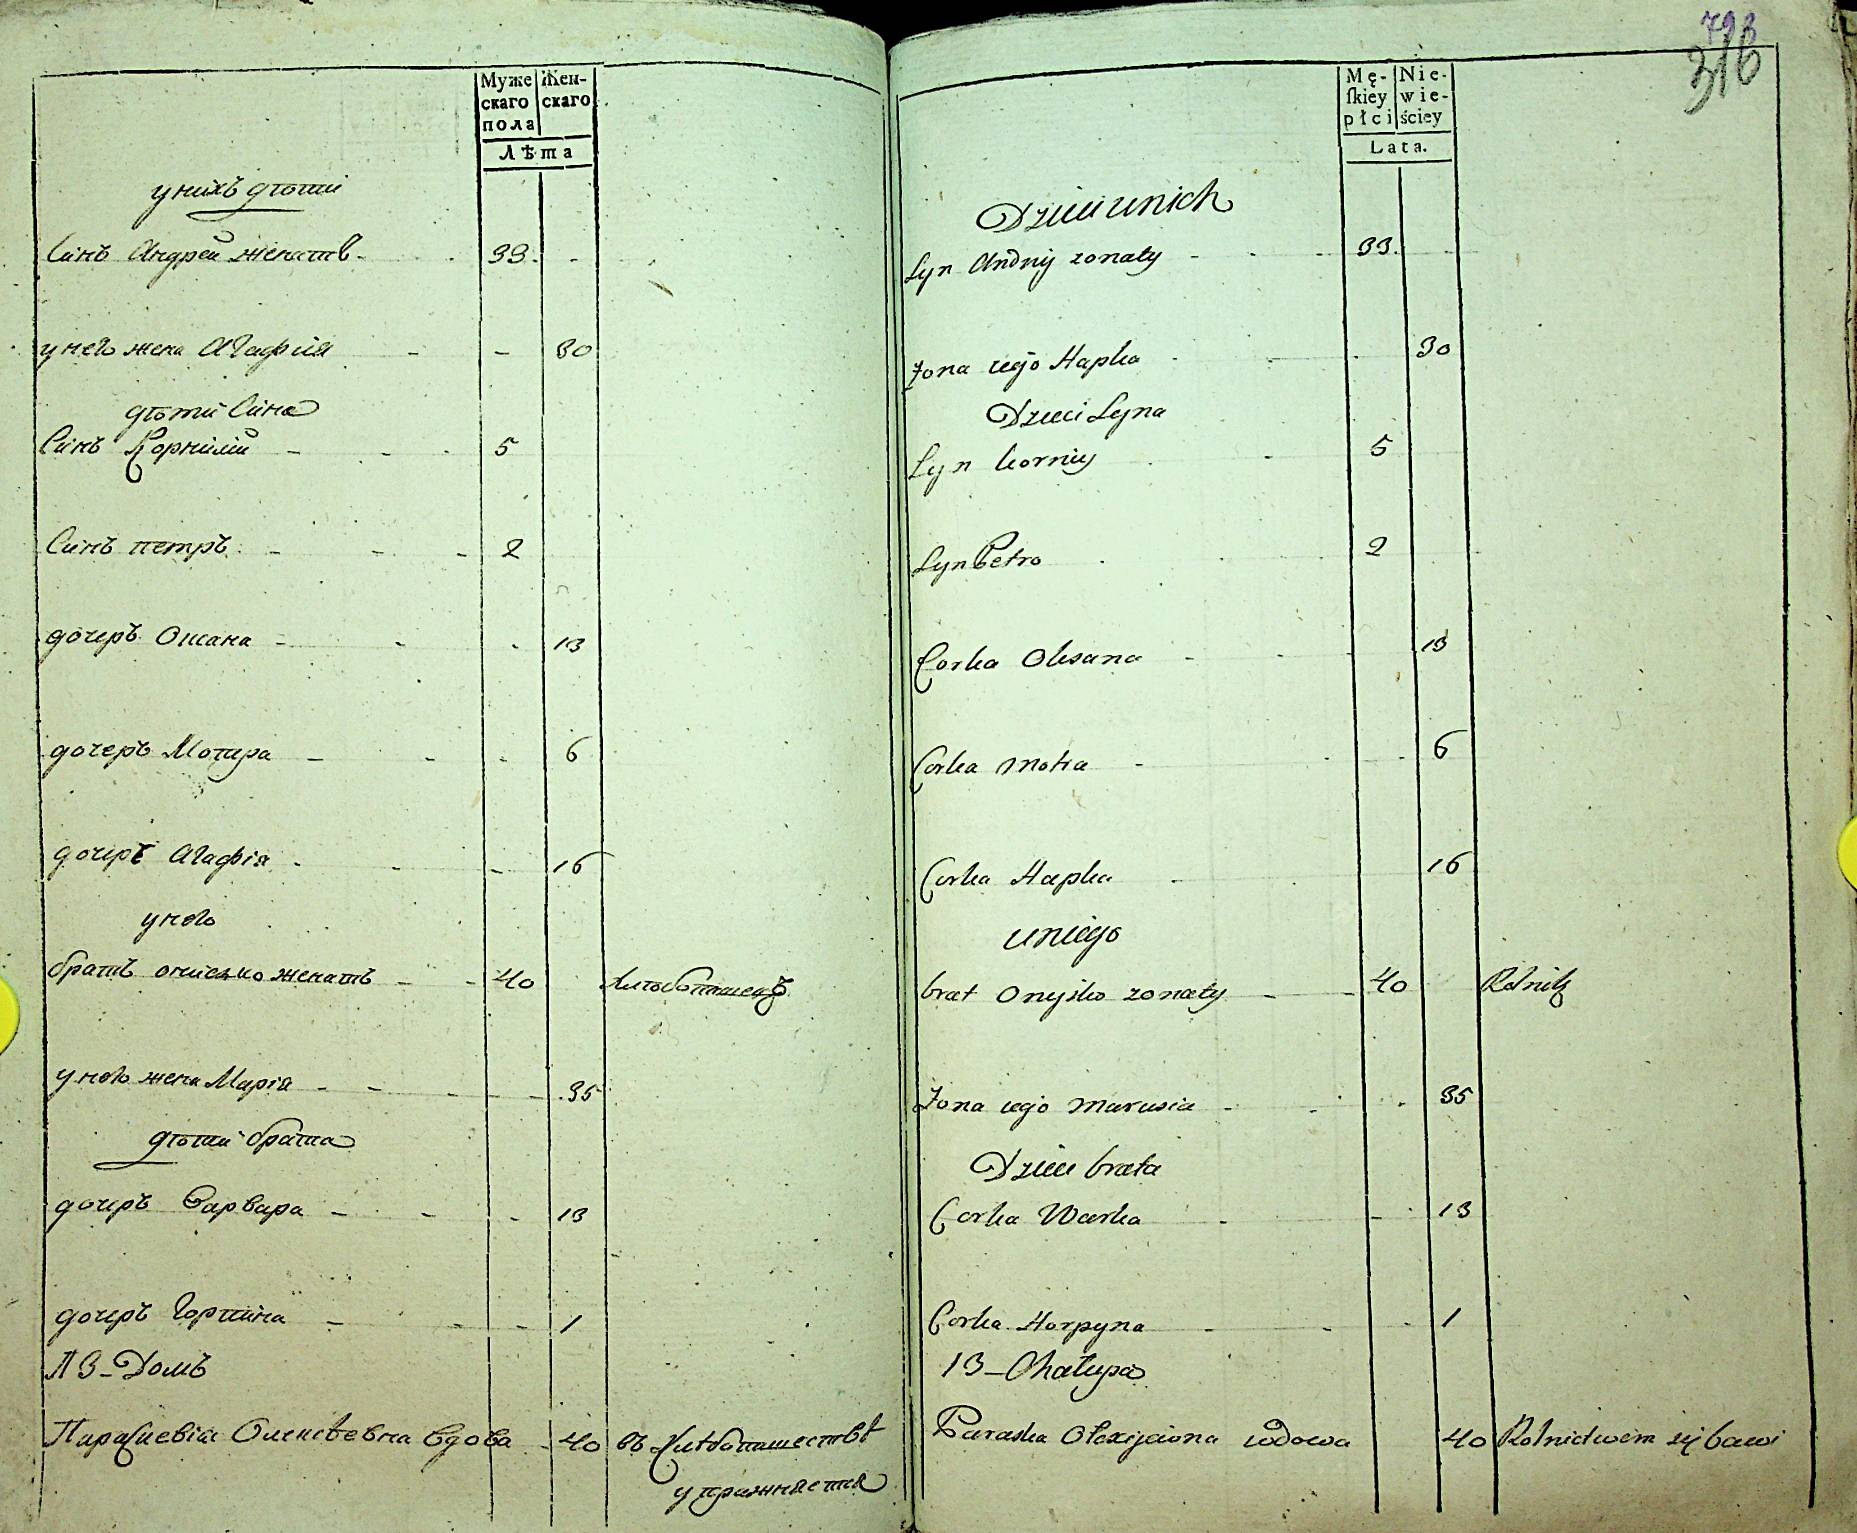 Муже
скаго
пола
Жен-
скаго
Лѣта
у нихъ дѣти
Синъ Андрей женатъ 33
у него жена Агафия 30
дѣти Сина
Синъ Корнилій 5
Синъ петръ 2
дочеръ Оксана 13
дочеръ Мотра 6
дочеръ Агафія 16
у него
братъ онисько женатъ 40 хлѣбопашецъ
у него жена Марія 35
дѣти брата
дочеръ Варвара 13
дочеръ Горпина 1
13 – Домъ
Параскевія Олексѣевна вдова 40 въ хлѣбопашествѣ
упражняется
798
316
Mę-
ſkiey
płci
Nie-
wie-
ściey
Lata.
Dzieci u nich
Syn Andrij zonaty 33
Zona iego Hapka 30
Dzieci Syna
Syn kornij 5
Syn Petro 2
Corka Oksana 13
Corka Motra 6
Corka Hapka 16
u niego
brat Onyśko zonaty 40 Rolnik
Zona iego Marusia 35
Dzieci brata
Corka Warka 13
Corka Horpyna 1
13 – Chałupa
Paraska Olexijewna wdowa 40 Rolnictwem się bawi